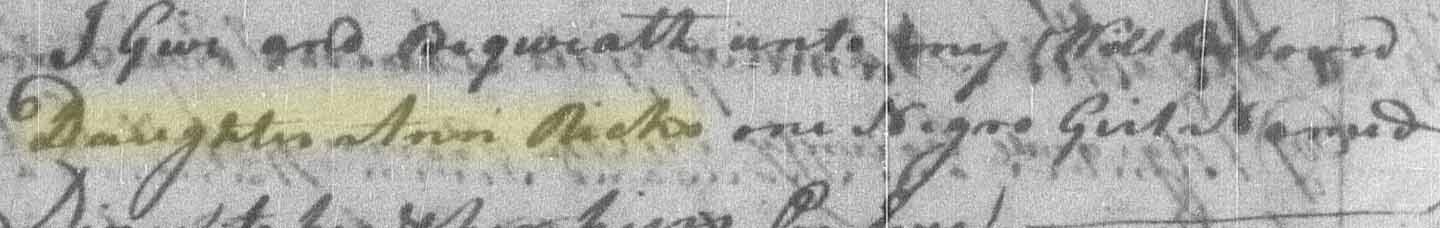 I Give and Bequeath unto my Well Beloved
Daughter Ann Ricks one Negro Girl Named
to her & her heirs